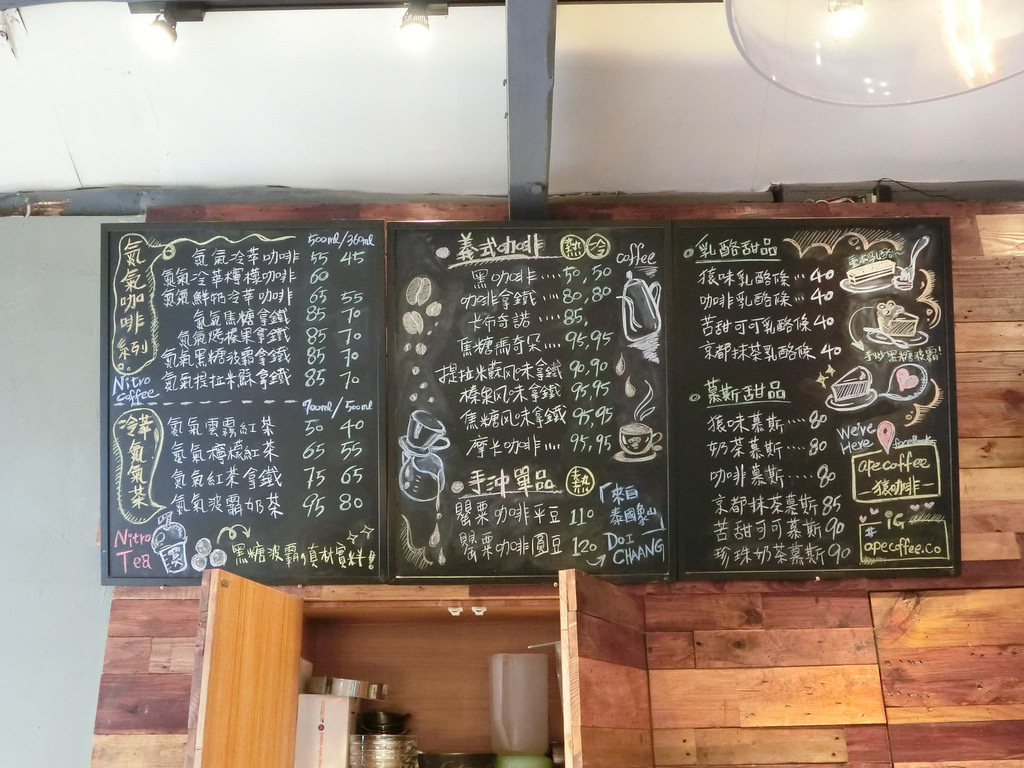 氮氣咖啡系列
Nitro
Coffee
500ml/360ml
氮氣冷萃咖啡 55 45
氮氣冷萃檸檬咖啡 60
氮氣鮮奶冷萃咖啡 65 55
氮氣焦糖拿鐵 85 70
氮氣榛果拿鐵 85 70
氮氣黑糖波霸拿鐵 85 70
氮氣提拉米蘇拿鐵 85 70
冷萃氮氣茶
Nitro
Tea
700ml/500ml
氮氣雲霧紅茶 50 40
氮氣檸檬紅茶 65 55
氮氣紅茶拿鐵 75 65
氮氣波霸奶茶 95 80
黑糖波霸の真材實料!
義式咖啡 熱 冷
coffee
黑咖啡....50,50
咖啡拿鐵...80,80
卡布奇諾...85,
焦糖瑪奇朵...95,95
提拉米蘇风味拿鐵 90,90
榛果风味拿鐵 95,95
焦糖风味拿鐵 95,95
摩卡咖啡....95,95
手沖單品 熱
罌粟咖啡平豆 110
罌粟咖啡圓豆 120
「來自
泰國象山
DOI
CHAANG
乳酪甜品
猿味乳酪條...40
咖啡乳酪條...40
苦甜可可乳酪條 40
京都抹茶乳酪條 40
慕斯甜品
猿味慕斯....80
奶茶慕斯....80
咖啡慕斯....80
京都抹茶慕斯 85
苦甜可可慕斯 90
珍珠奶茶慕斯 90
手炒黑糖波霸
We're
Here
facebook
apecoffee
一猿咖啡一
iG
#
apecoffee.co